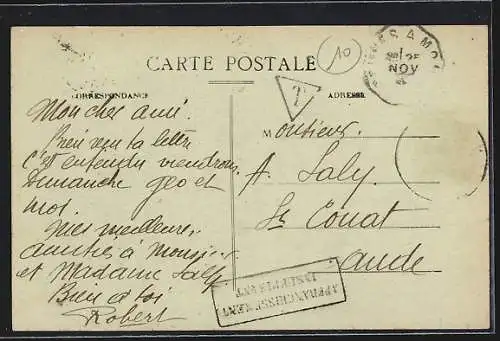 CARTE POSTALE
CORRESPONDANCE
ADRESSE
T
10
NOV
Mon cher ami.
Bien reçu ta lettre
C'est entendu viendrons
Dimanche Geo et
moi.
Mes meilleures
amitiés à Monsieur
et Madame Saly
Bien à toi
Robert
Monsieur
A. Saly
St Couat
Aude
AFFRANCHISSEMENT
INSUFFISANT